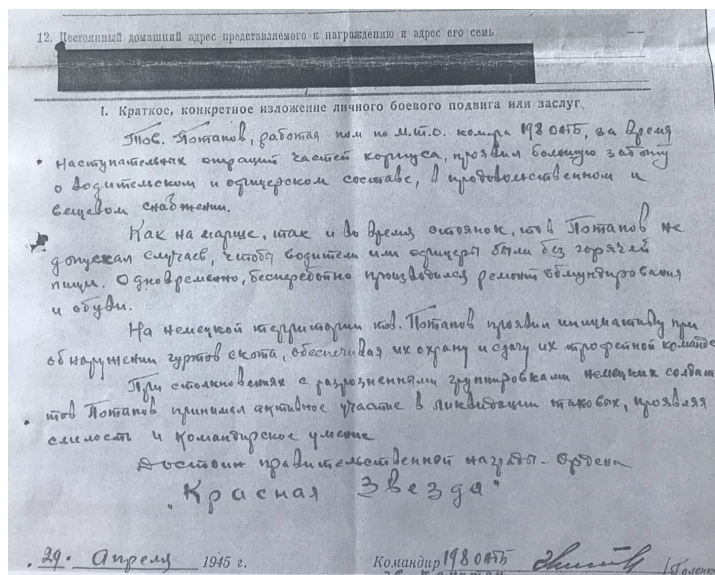 12. Постоянный домашний адрес представляемого к награждению и адрес его семь
I. Краткое, конкретное изложение личного боевого подвига или заслуг
Тов. Потапов, работая пом по М.Т.О. комдра 198 ОАТБ, за время
наступательных операций частей корпуса, проявил большую заботу
о водительском и офицерском составе, в продовольственном и
вещевом снабжении.
Как на марше, так и во время стоянок, тов Потапов не
допускал случаев, чтобы водители или офицеры были без горячей
пищи. Одновременно, бесперебойно производился ремонт обмундирования
и обуви.
На немецкой территории тов. Потапов проявил инициативу при
обнаружении гуртов скота, обеспечивая их охрану и сдачу их трофейной команде
При столкновениях с разрозненными группировками немецких солдат
тов Потапов принимал активное участие в ликвидации таковых, проявляя
смелость и командирское умение
Достоин правительственной награды - Ордена
"Красная Звезда"
29. Апреля 1945 г. Командир 198 ОАТБ